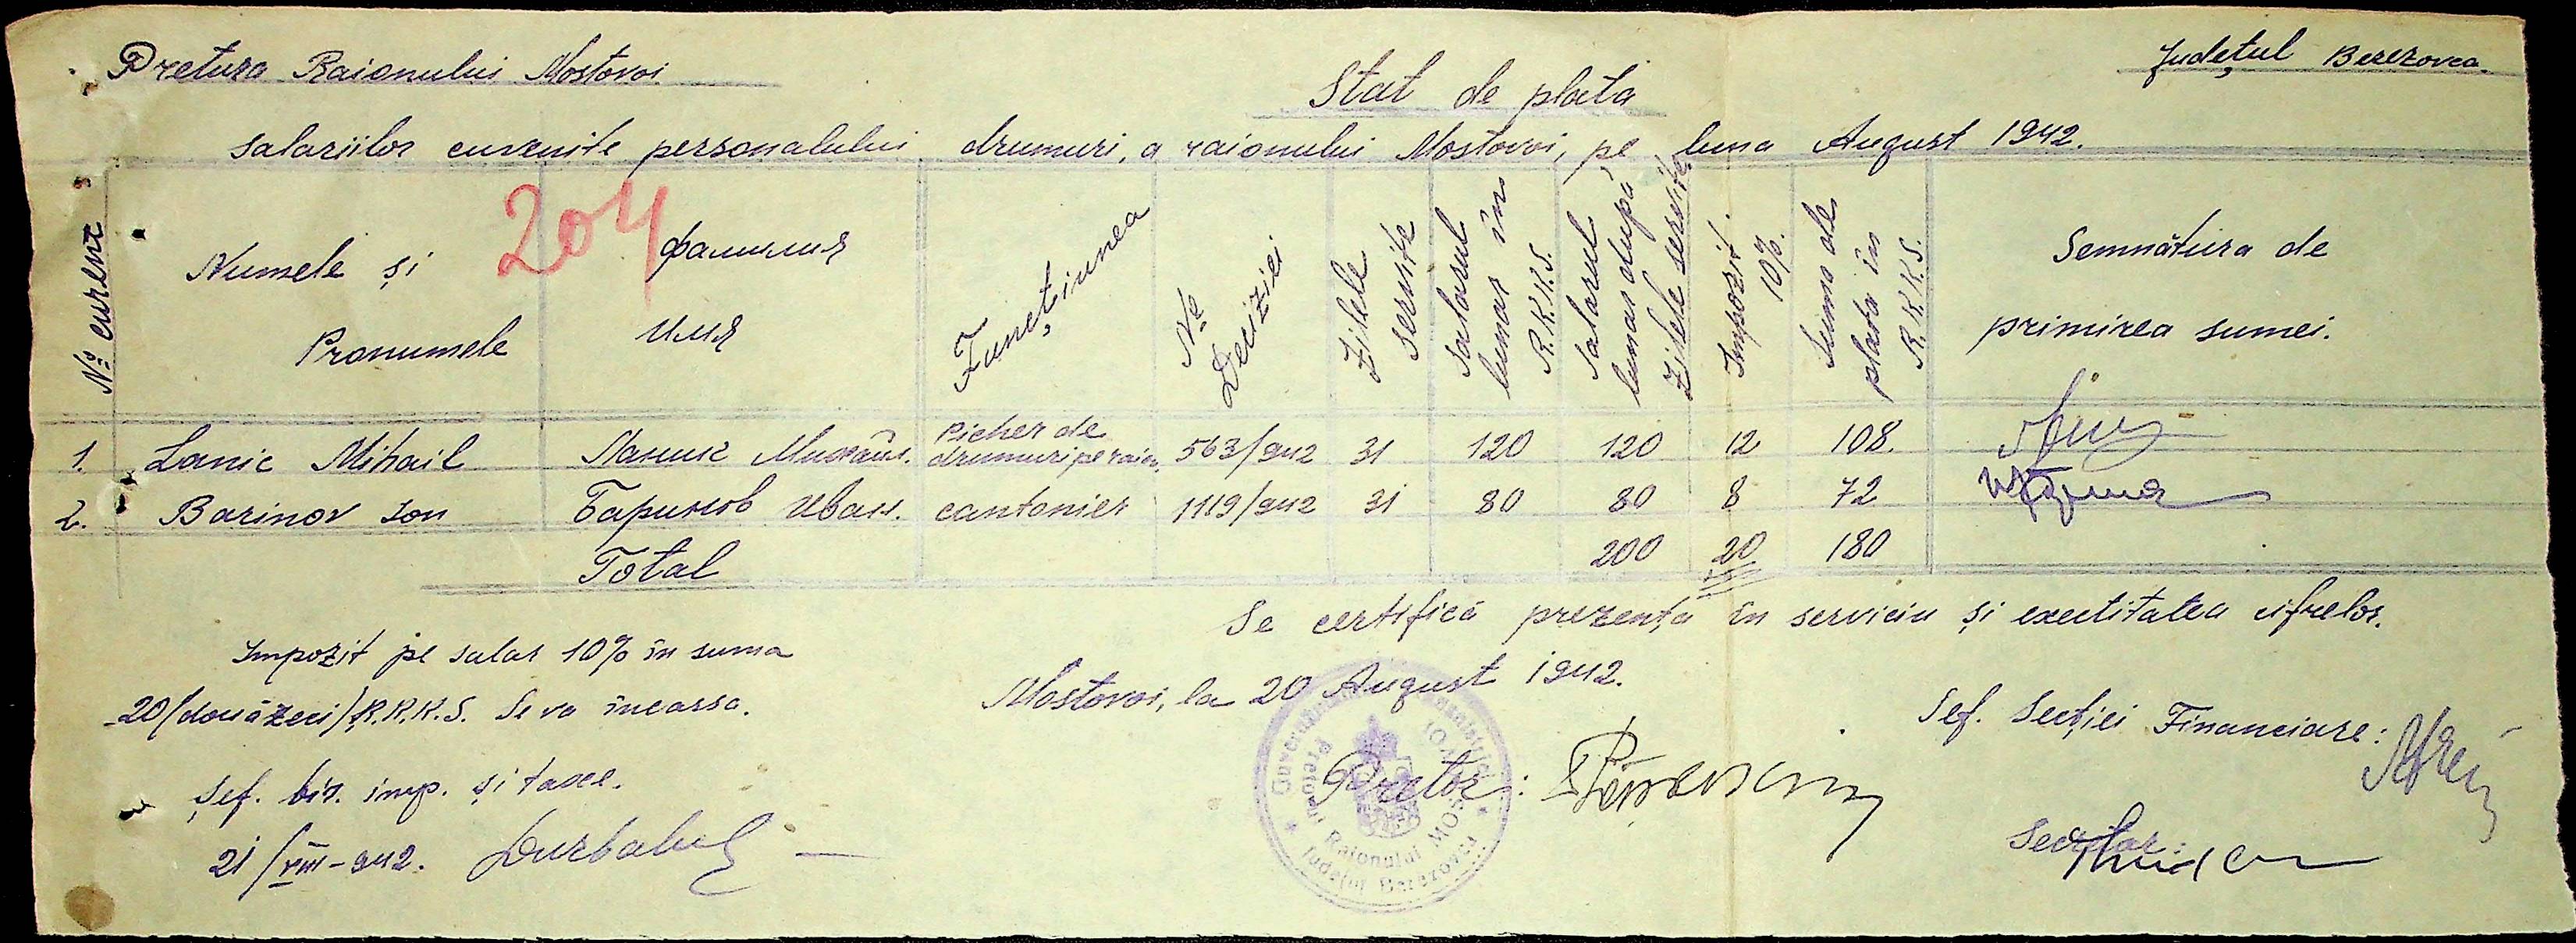 Pretura Raionului Mostovoi
Județul Berezovca.
Stat de plata
salariilor cuvenite personalului drumuri, a raionului Mostovoi, pe luna August 1942.
204
No curent
Numele și Pronumele
фамилия имя
Funcțiunea
No Deciziei
Zilele servite
Salarul lunar în R.K.K.S.
Salarul lunar după Zilele servite
Impozit 10%.
Suma de plata în R.K.K.S.
Semnătura de primirea sumei.
1. Lanic Mihail Ланик Михаил. Picher de drumuri pe raion. 563/942 31 120 120 12 108.
2. Barinov Ion Баринов Иван. cantonier 1119/942 31 80 80 8 72
Total 200 20 180
Se certifică prezența în serviciu și exactitatea cifrelor.
Impozit pe salar 10% în suma
20/douăzeci/R.K.K.S. Se va încassa.
Mostovoi, la 20 August 1942.
Șef. bir. imp. și taxe.
21/VIII-942.
Pretor:
Șef. Secției Financiare:
Secretar:
Guvernământul Transnistriei
Pretorul Raionului MOSTOVOI
Județul Berezovca